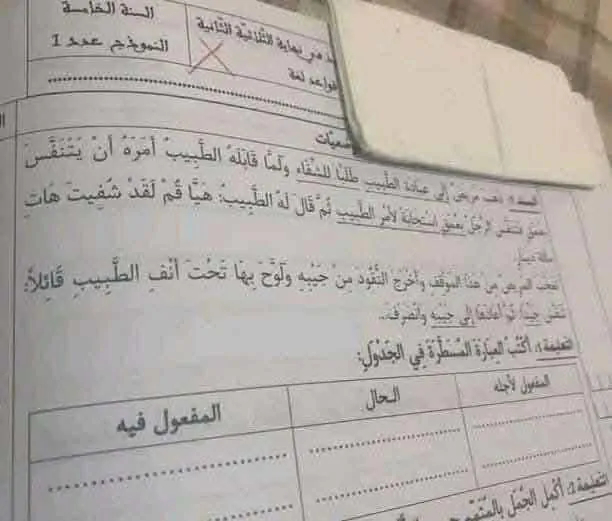 السنة الخامسة
النموذج عدد 1
نهاية الثلاثية الثانية
قواعد لغة
السند 1: ذهب مريض إلى عيادة الطبيب طلبًا للشفاء ولَمَّا قَابَلَهُ الطَّبِيبُ أَمَرَهُ أَنْ يَتَنَفَّسَ
بعمق فتنفس الرجل بعمق استجابة لأمر الطبيب ثُمَّ قَالَ لَهُ الطَّبِيبُ: هَيَّا قُمْ لَقَدْ شُفِيتَ هَاتِ
مائة دينار.
تعجب المريض من هذا الموقف وأَخْرَجَ النُّقُودَ مِنْ جَيْبِهِ وَلَوَّحَ بِهَا تَحْتَ أَنْفِ الطَّبِيبِ قَائِلاً:
تنفس جيدا ثم أعادها إلى جيبه وانصرف..
التعليمة 1: أَكْتُبُ العِبَارَةَ المُسَطَّرَةَ فِي الجَدْوَلِ:
المفعول لأجله
الحال
المفعول فيه
التعليمة 2: أُكْمِلُ الجُمَلَ بِالمُتَمِّمِ